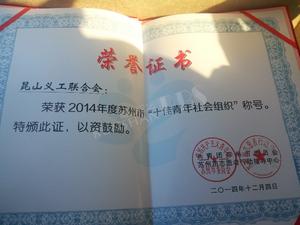 荣誉证书
昆山义工联合会：
荣获2014年度苏州市“十佳青年社会组织”称号。
特颁此证，以资鼓励。
二〇一四年十二月四日